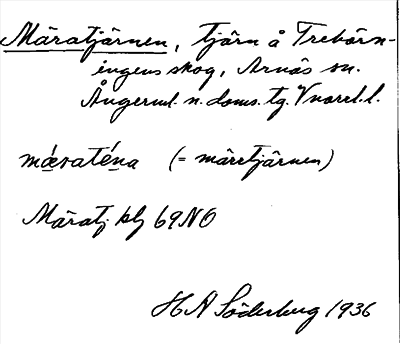 Märatjärnen, tjärn å Trebörn-
ingens skog, Arnäs sn.
Ångerml. n. doms. tg. Vnorrl. l.
mǽraténa (= märrtjärnen)
Märatj. blj 69NO
H A Söderberg 1936